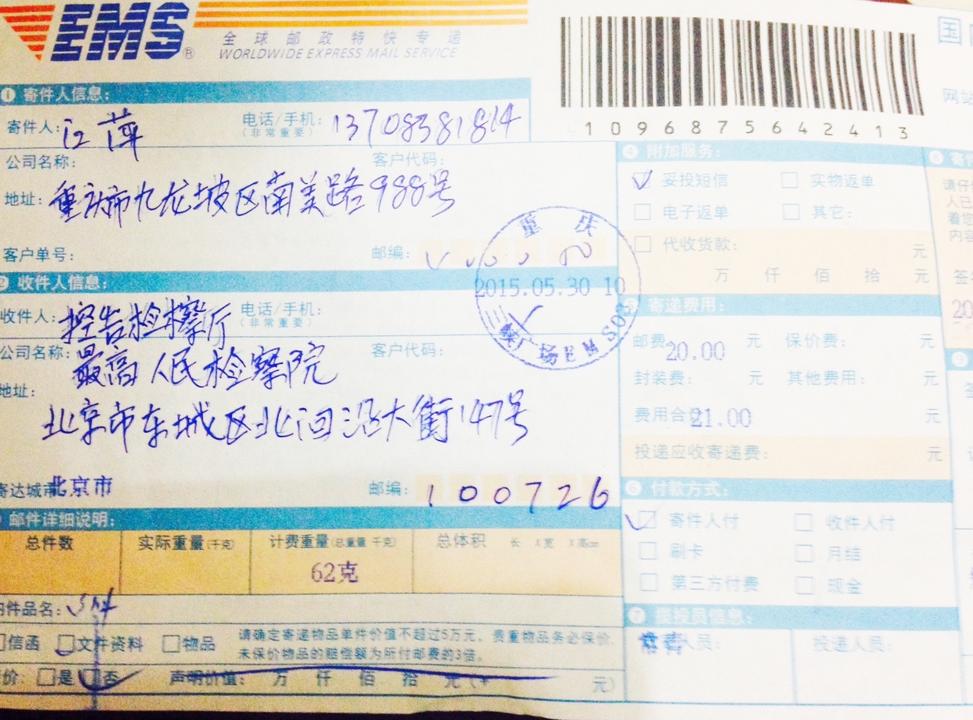 EMS®
全球邮政特快专递
WORLDWIDE EXPRESS MAIL SERVICE
国
网站
1096875642413
❶ 寄件人信息:
寄件人: 江萍 电话/手机: 13708381814
(非常重要)
公司名称: 客户代码:
地址: 重庆市九龙坡区南美路988号
客户单号: 邮编:
重庆
2015.05.30 10
收件人信息
收件人: 控告检察厅 电话/手机:
(非常重要)
公司名称: 最高人民检察院 客户代码:
地址:
北京市东城区北河沿大街147号
寄达城市: 北京市 邮编: 100726
邮件详细说明:
总件数 实际重量(千克) 计费重量(总重量 千克) 总体积 长 X宽 X高cm
62克
内件品名:
信函 文件资料 物品
请确定寄递物品单件价值不超过5万元,贵重物品务必保价,
未保价物品的赔偿额为所付邮费的3倍。
价: 是 否 声明价值: 万 仟 佰 拾 元(¥ 元)
❹ 附加服务:
妥投短信 实物返单
电子返单 其它:
代收货款: 元
万 仟 佰 拾 元
寄递费用:
邮费: 20.00 元 保价费: 元
封装费: 元 其他费用: 元
费用合计: 21.00 元
投递应收寄递费: 元
❻ 付款方式:
寄件人付 收件人付
刷卡 月结
第三方付费 现金
❼ 揽投员信息:
人员: 投递人员: